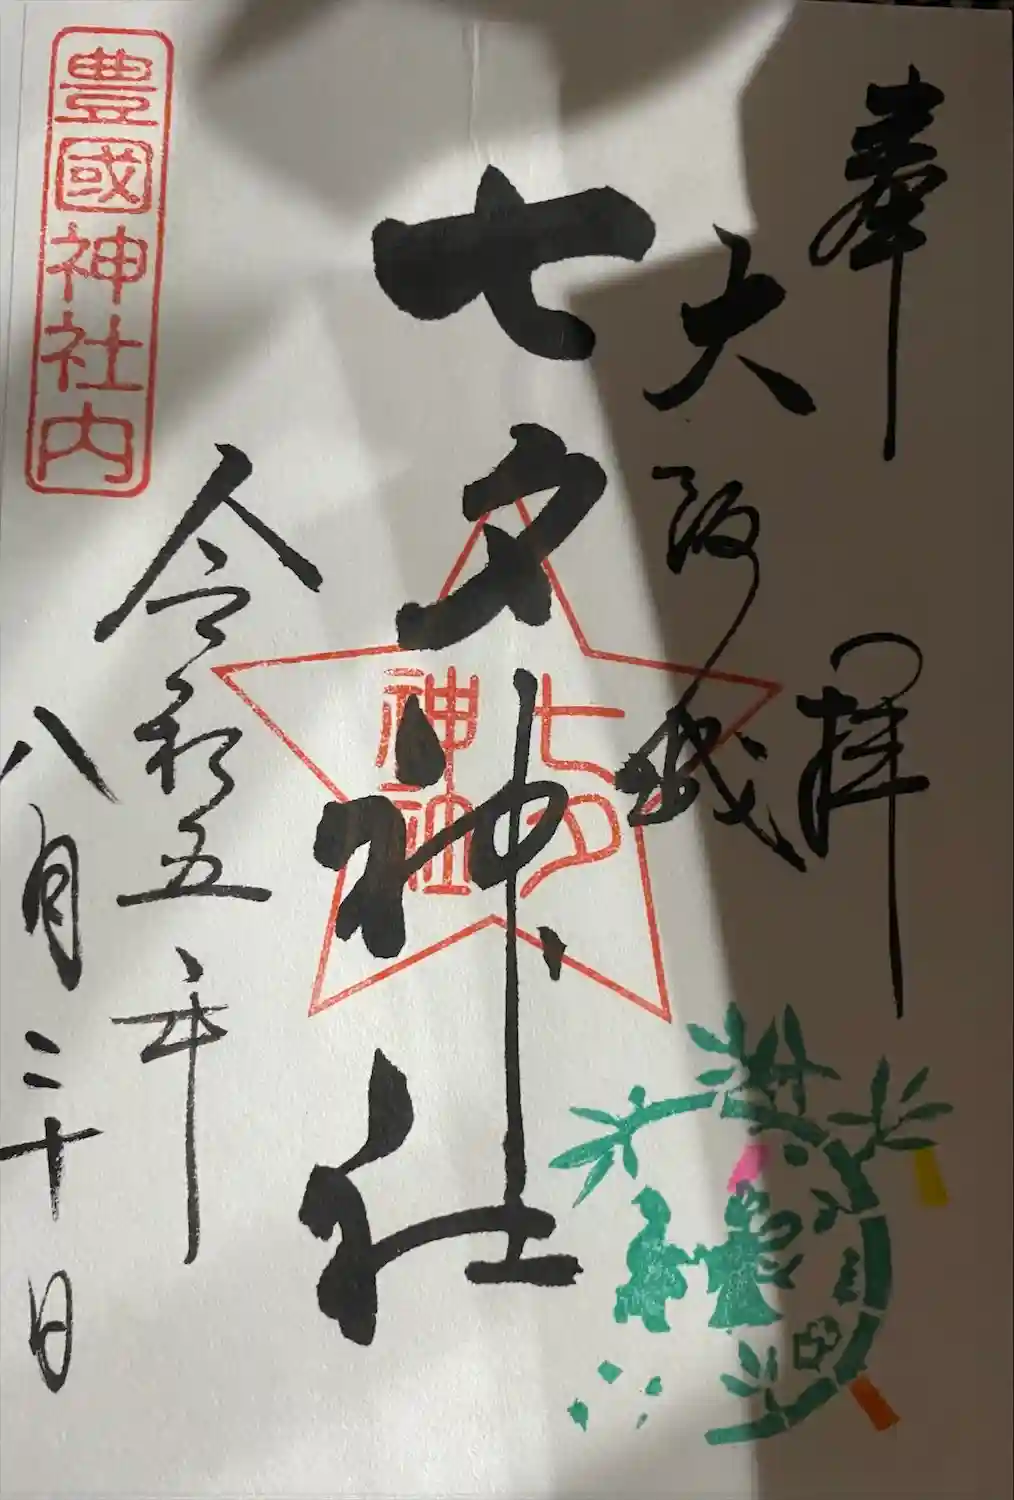 奉拝
大阪城
七夕神社
七夕
神社
令和五年
八月二十日
豊國神社内